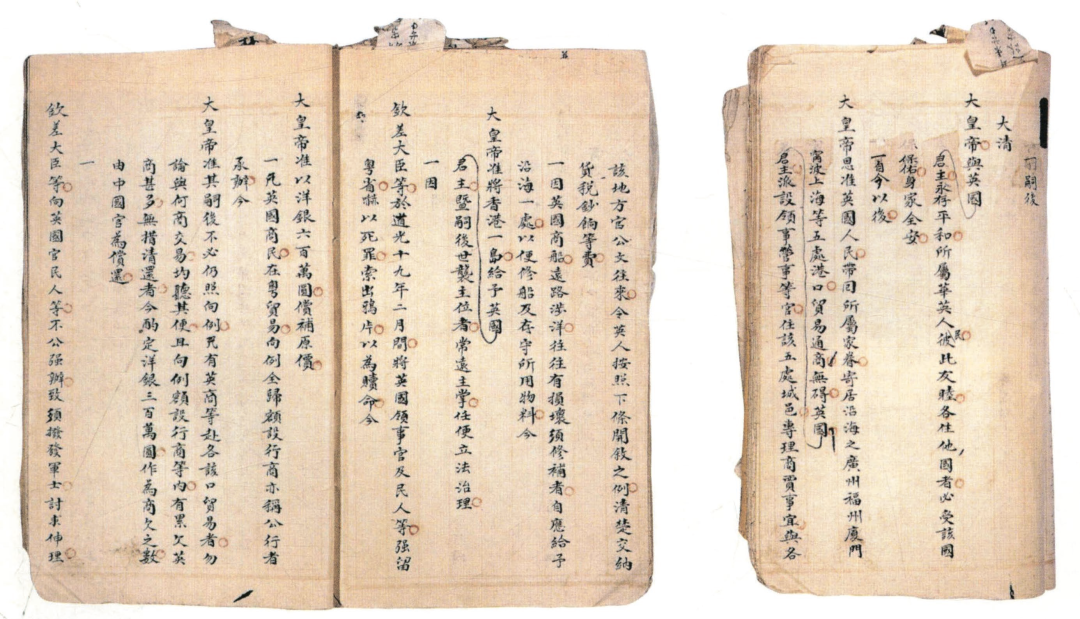 嗣後
大清
大皇帝與英國
君主永存平和所屬華英人民彼此友睦各住他國者必受該國
保佑身家全安
一自今以後
大皇帝恩准英國人民帶同所屬家眷寄居沿海之廣州福州廈門
寧波上海等五處港口貿易通商無碍英國
君主派設領事管事等官住該五處城邑專理商賈事宜與各
該地方官公文往來令英人按照下條開敘之例清楚交納
貨稅鈔餉等費
一因英國商船遠路涉洋往往有損壞須修補者自應給予
沿海一處以便修船及存守所用物料今
大皇帝准將香港一島給予英國
君主暨嗣後世襲主位者常遠主掌任便立法治理
一因
欽差大臣等於道光十九年二月間將英國領事官及民人等強留
粵省嚇以死罪索出鴉片以為贖命今
大皇帝准以洋銀六百萬圓償補原價
一凡英國商民在粵貿易向例全歸額設行商亦稱公行者
承辦今
大皇帝准其嗣後不必仍照向例凡有英商等赴各該口貿易者勿
論與何商交易均聽其便且向例額設行商等內有累欠英
商甚多無措清還者今酌定洋銀三百萬圓作為商欠之數
由中國官為償還
一
欽差大臣等向英國官民人等不公強辦致須撥發軍士討求伸理